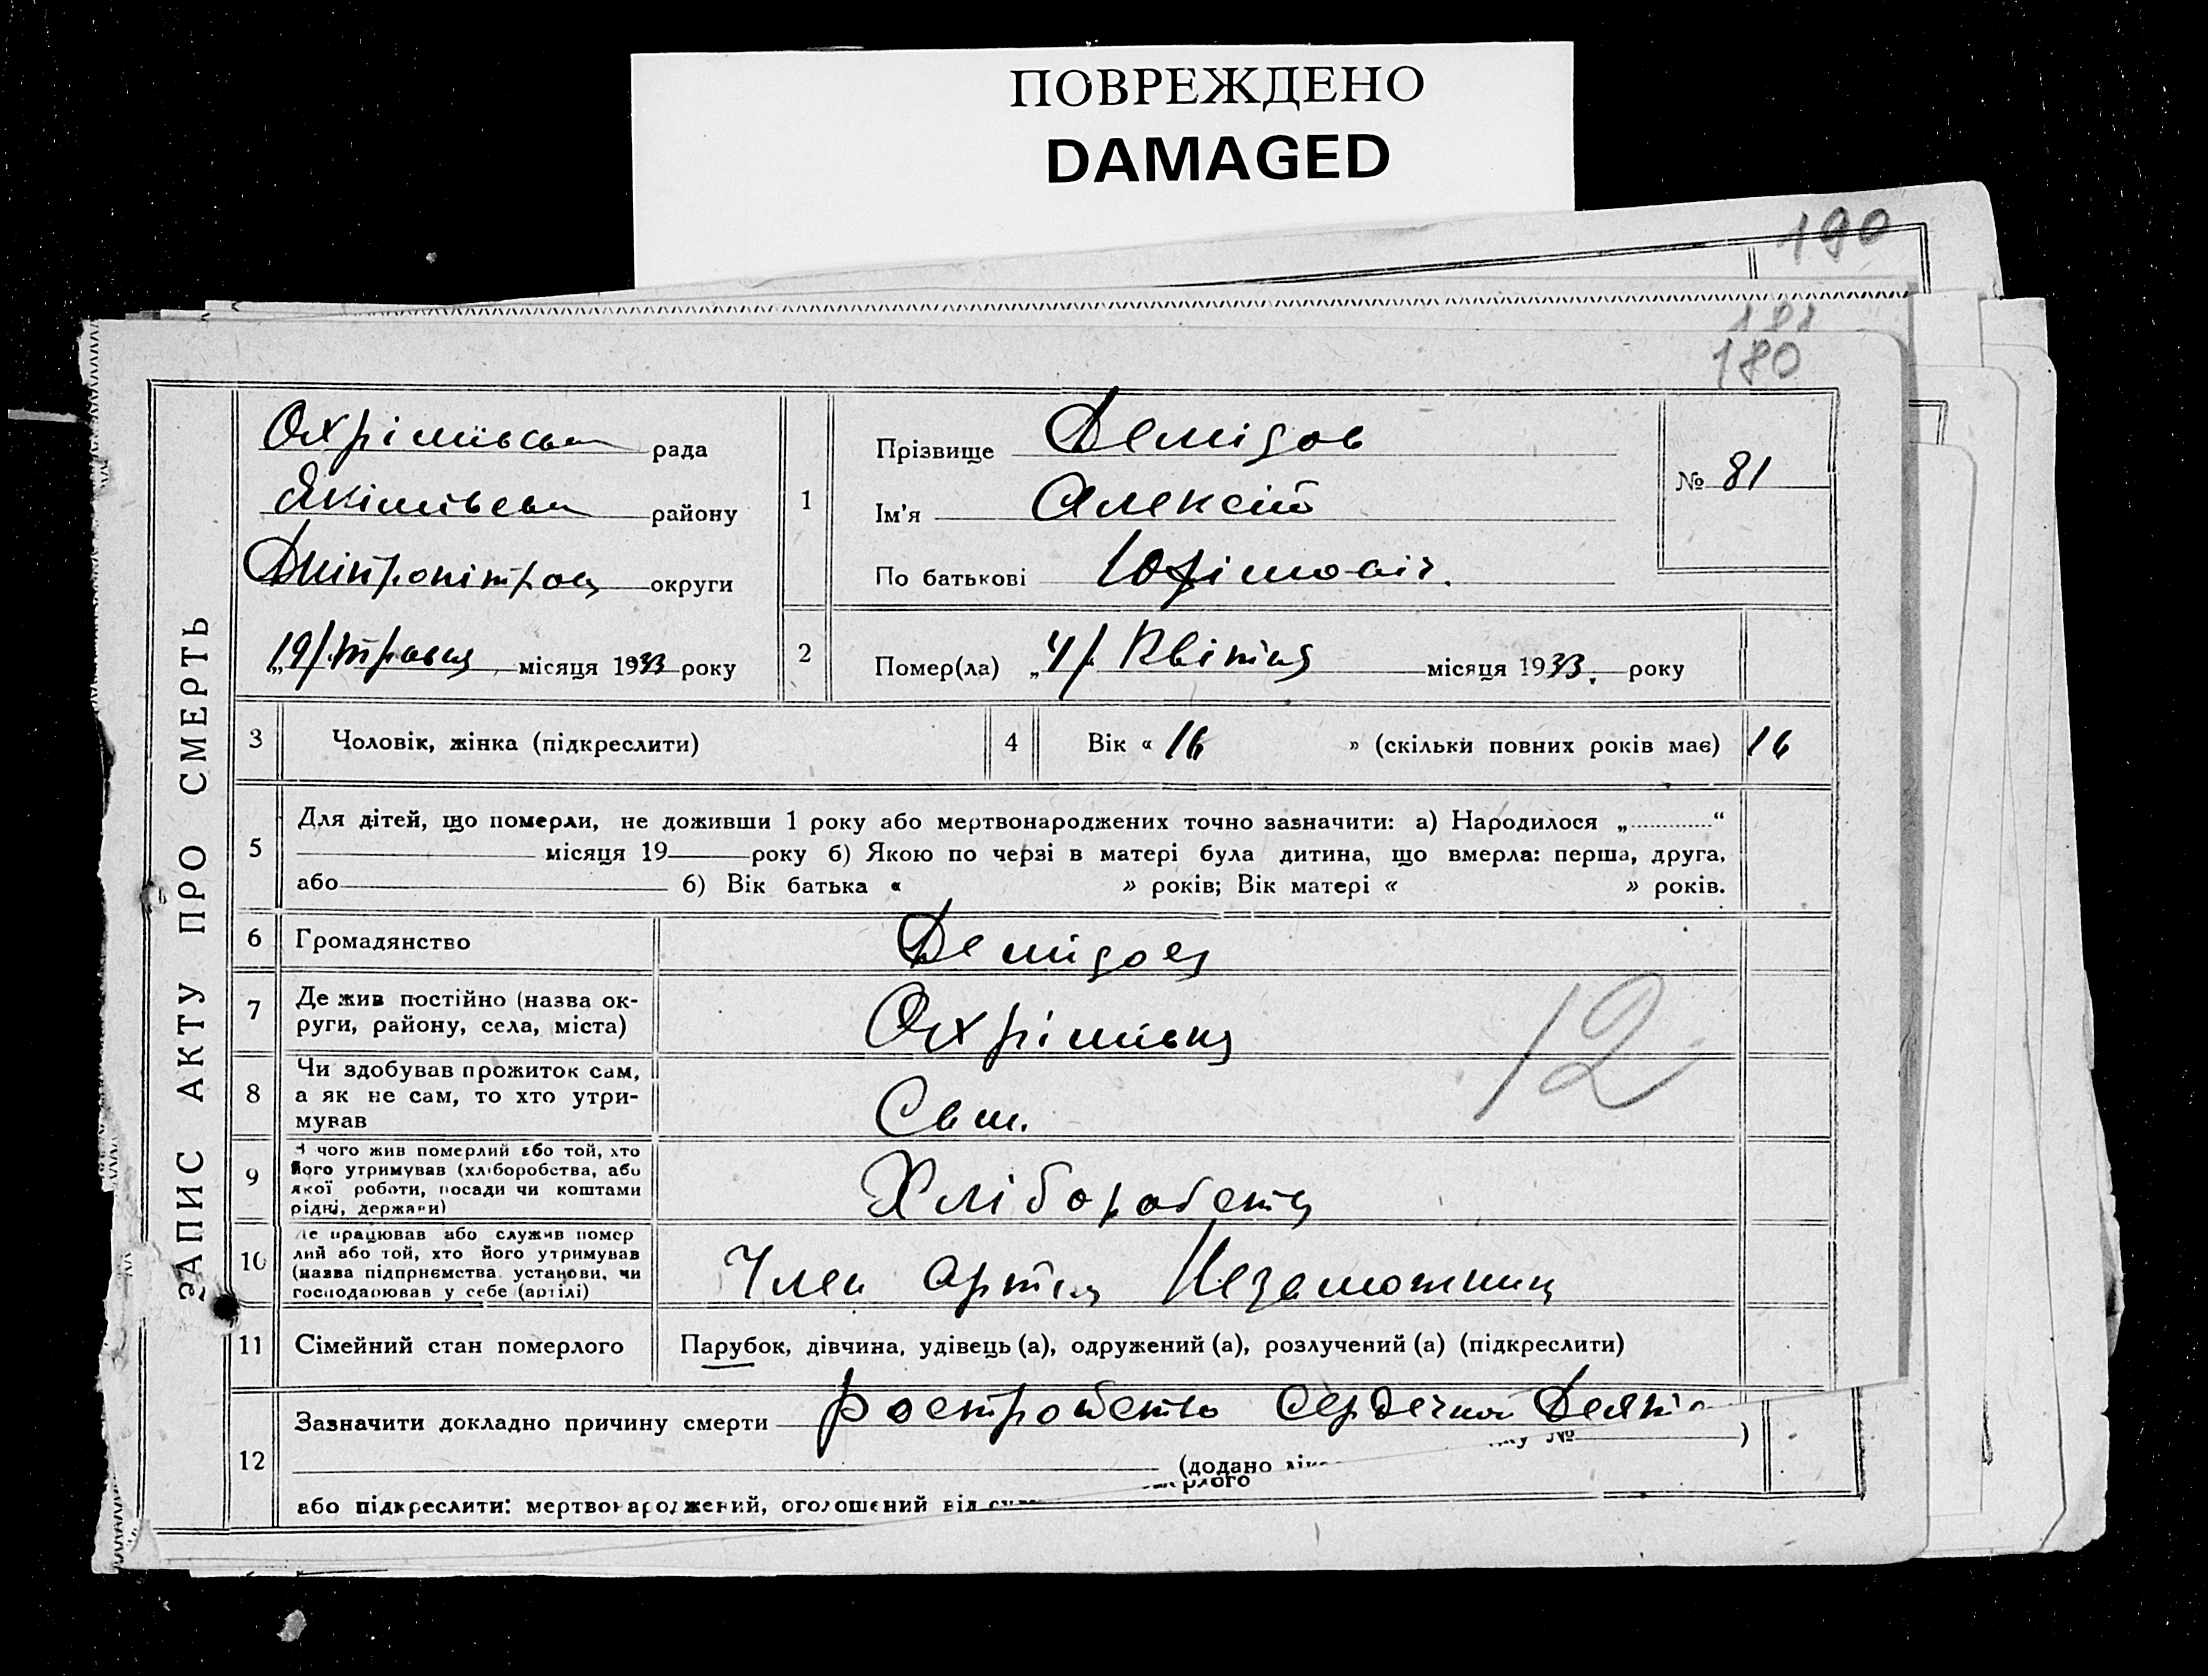 ПОВРЕЖДЕНО
DAMAGED
190
181
180
ЗАПИС АКТУ ПРО СМЕРТЬ
Охрімівська рада
Якімівська району
Дніпропітров округи
„19/травня місяця 1933 року
1
Прізвище Демідов
Ім'я Алексій
По батькові Юфімовіч.
№ 81
2
Помер(ла) „4/ Квітня місяця 1933. року
3 Чоловік, жінка (підкреслити)
4 Вік « 16 » (скільки повних років має) 16
5 Для дітей, що померли, не доживши 1 року або мертвонароджених точно зазначити: а) Народилося „ “
місяця 19 року б) Якою по черзі в матері була дитина, що вмерла: перша, друга,
або б) Вік батька « » років; Вік матері « » років.
6 Громадянство Демідов
7 Де жив постійно (назва ок-
руги, району, села, міста) Охрімівка
12
8 Чи здобував прожиток сам,
а як не сам, то хто утри-
мував Сам.
9 З чого жив померлий або той, хто
його утримував (хліборобства, або
якої роботи, посади чи коштами
рідні, держави) Хліборобства
10 Де працював або служив помер
лий або той, хто його утримував
(назва підприємства установи, чи
господарював у себе (артілі) Член Артіля Незаможник
11 Сімейний стан померлого Парубок, дівчина, удівець (а), одружений (а), розлучений (а) (підкреслити)
12 Зазначити докладно причину смерти росстройство Сердечной
№ )
(додано
або підкреслити: мертвонароджений, оголошений від